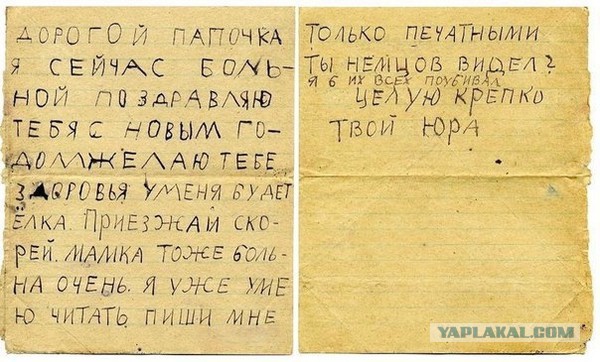 ДОРОГОЙ ПАПОЧКА
Я СЕЙЧАС БОЛЬ-
НОЙ ПОЗДРАВЛЯЮ
ТЕБЯ С НОВЫМ ГО-
ДОМ ЖЕЛАЮ ТЕБЕ
ЗДОРОВЬЯ УМЕНЯ БУДЕТ
ЁЛКА. ПРИЕЗЖАЙ СКО-
РЕЙ. МАМКА ТОЖЕ БОЛЬ-
НА ОЧЕНЬ. Я УЖЕ УМЕ
Ю ЧИТАТЬ ПИШИ МНЕ
ТОЛЬКО ПЕЧАТНЫМИ
ТЫ НЕМЦОВ ВИДЕЛ?
Я Б ИХ ВСЕХ ПОУБИВАЛ
ЦЕЛУЮ КРЕПКО
ТВОЙ ЮРА
YAPLAKAL.COM